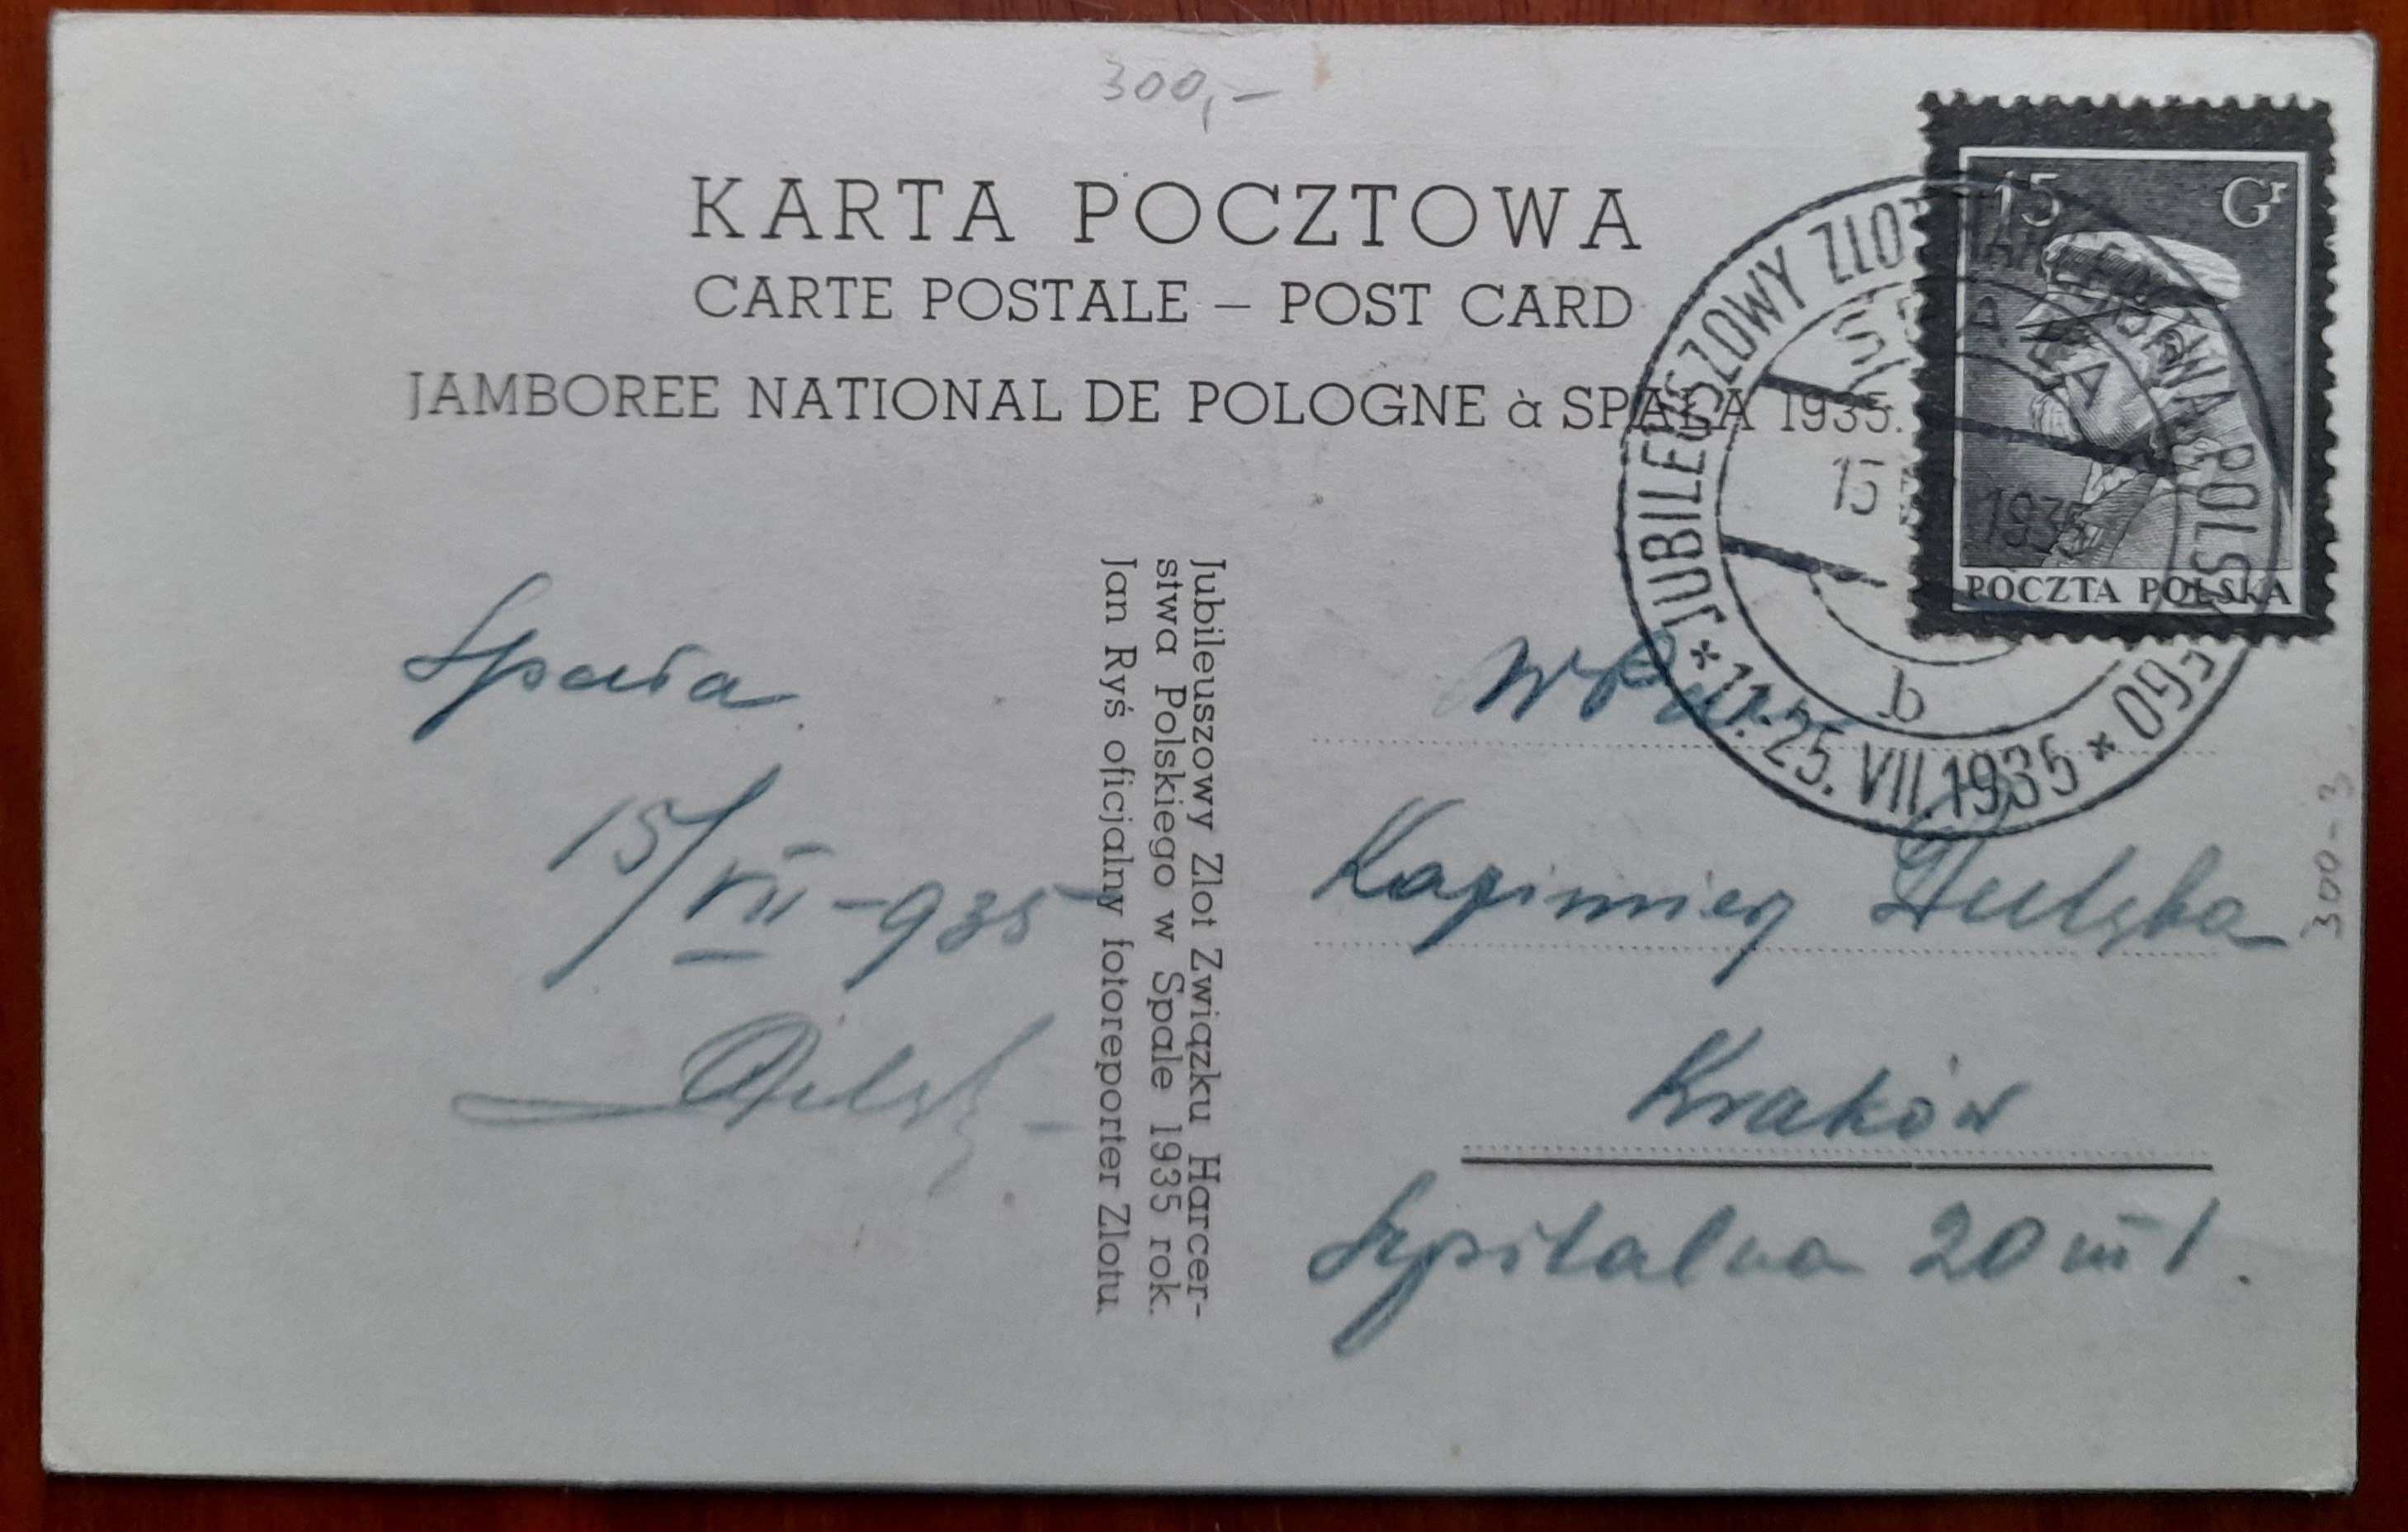 300,-
KARTA POCZTOWA
CARTE POSTALE – POST CARD
JAMBOREE NATIONAL DE POLOGNE à SPAŁA 1935.
15 Gr
POCZTA POLSKA
JUBILEUSZOWY ZLOT HARCERSTWA POLSKIEGO
SPAŁA
15 1935
b
* 11.-25. VII. 1935 *
Spała
15/VII-935
Jubileuszowy Zlot Związku Harcer-
stwa Polskiego w Spale 1935 rok.
Jan Ryś oficjalny fotoreporter Zlotu.
WPan
Kazimierz
Kraków
Szpitalna 20 m 1.
300-3